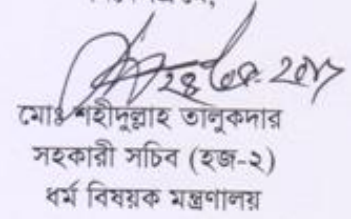 মোঃ শহীদুল্লাহ তালুকদার
সহকারী সচিব (হজ-২)
ধর্ম বিষয়ক মন্ত্রণালয়